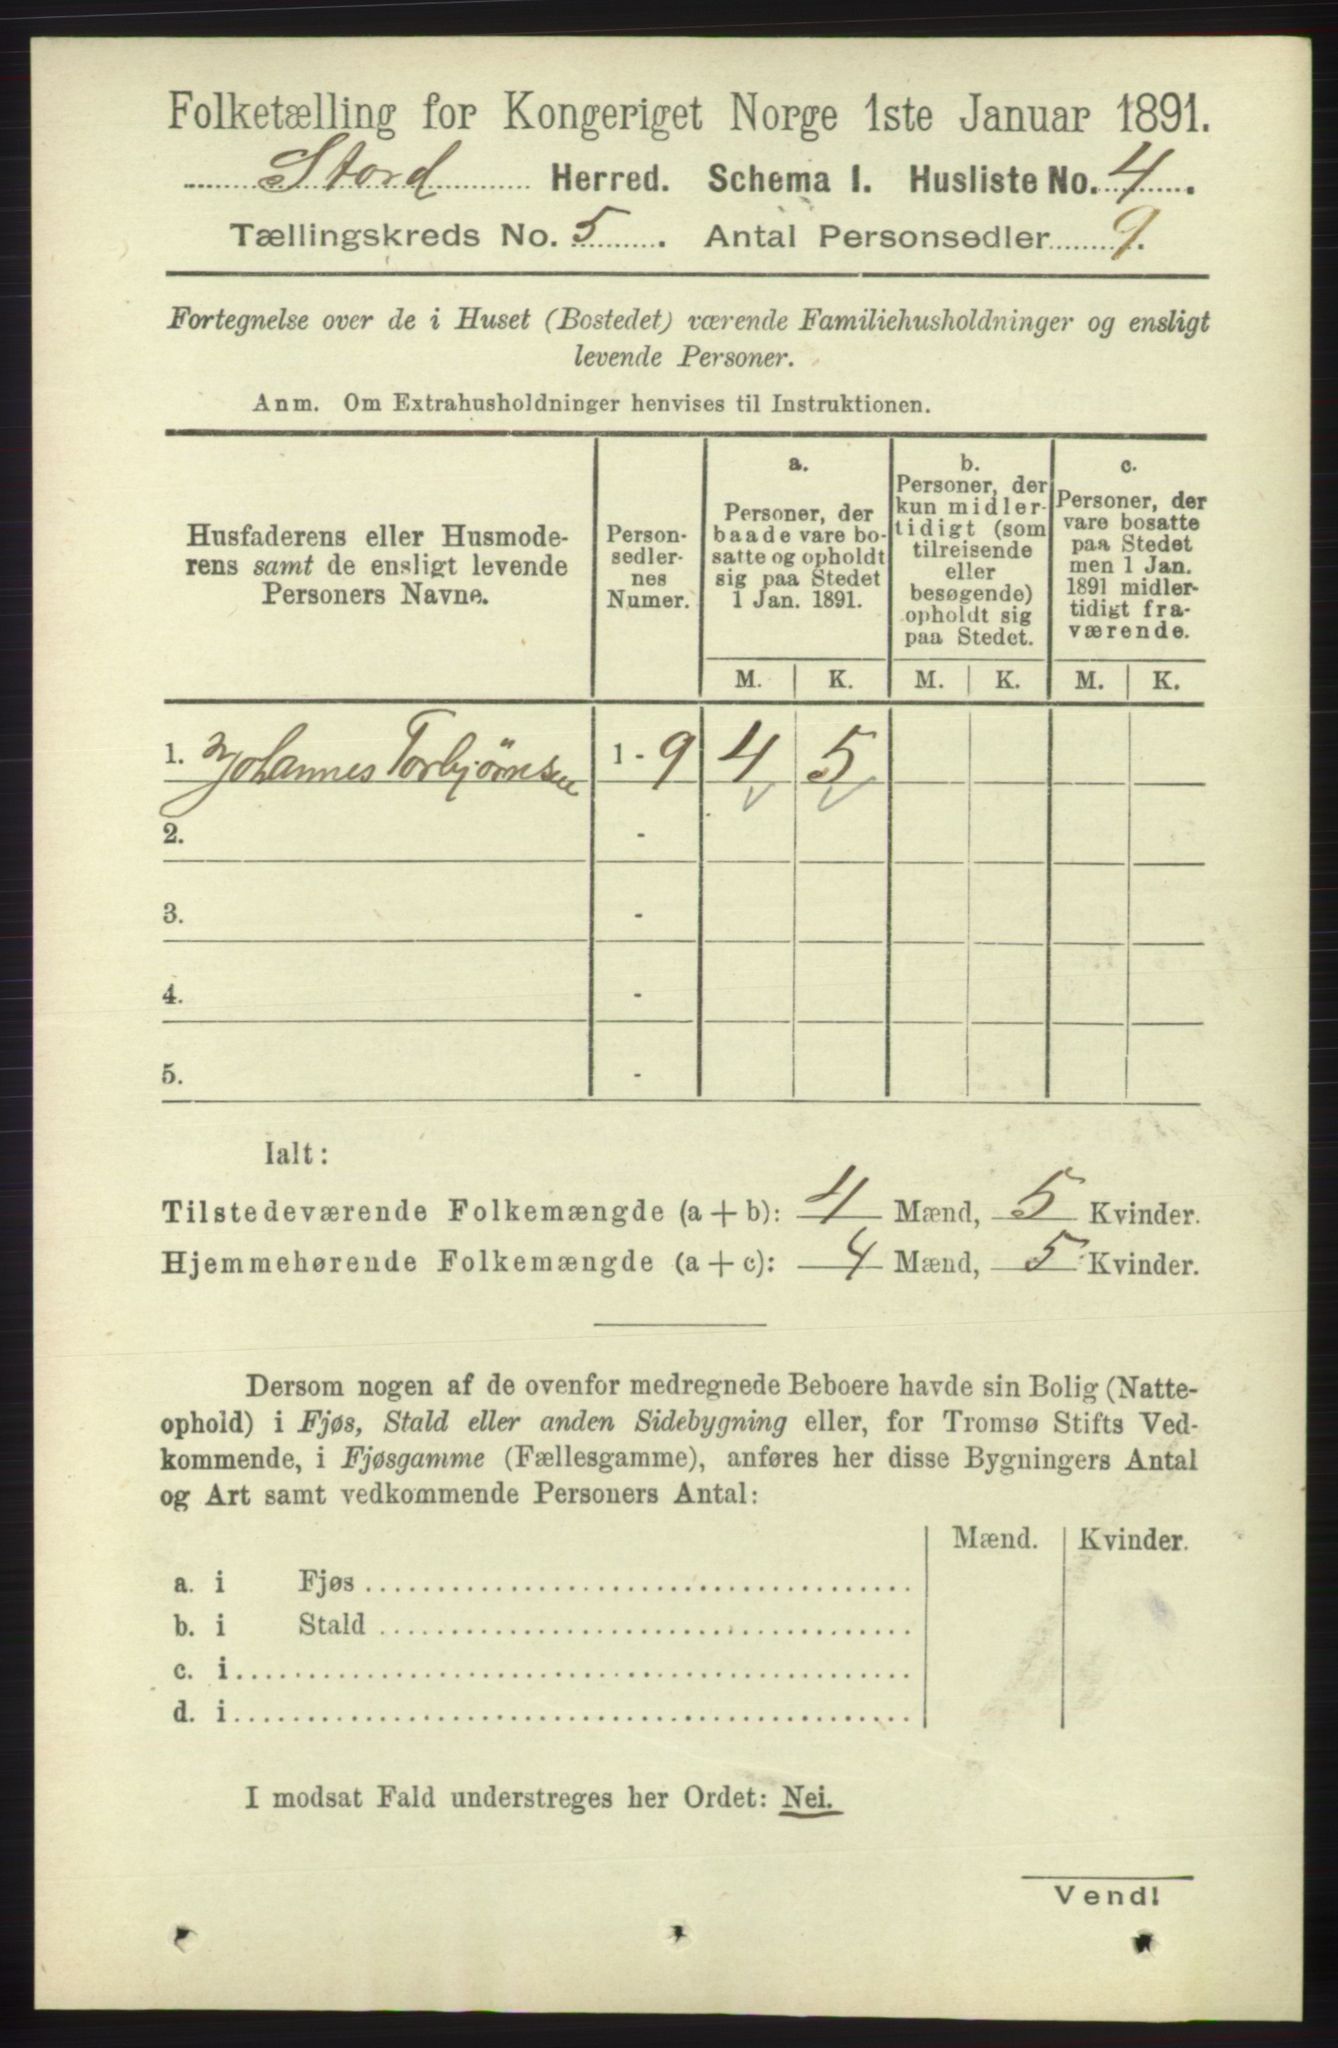 Folketælling for Kongeriget Norge 1ste Januar 1891.
Stord Herred. Schema I. Husliste No. 4.
Tællingskreds No. 5. Antal Personsedler 9.
Fortegnelse over de i Huset (Bostedet) værende Familiehusholdninger og ensligt
levende Personer.
Anm. Om Extrahusholdninger henvises til Instruktionen.
Husfaderens eller Husmode-
rens samt de ensligt levende
Personers Navne.
Person-
sedler-
nes
Numer.
a.
Personer, der
baade vare bo-
satte og opholdt
sig paa Stedet
1 Jan. 1891.
b.
Personer, der
kun midler-
tidigt (som
tilreisende
eller
besøgende)
opholdt sig
paa Stedet.
c.
Personer, der
vare bosatte
paa Stedet
men 1 Jan.
1891 midler-
tidigt fra-
værende.
M. K. M. K. M. K.
1. Johannes Torbjørnsen 1 - 9 4 5
2. -
3. -
4. -
5. -
Ialt:
Tilstedeværende Folkemængde (a + b): 4 Mænd, 5 Kvinder.
Hjemmehørende Folkemængde (a + c): 4 Mænd, 5 Kvinder.
Dersom nogen af de ovenfor medregnede Beboere havde sin Bolig (Natte-
ophold) i Fjøs, Stald eller anden Sidebygning eller, for Tromsø Stifts Ved-
kommende, i Fjøsgamme (Fællesgamme), anføres her disse Bygningers Antal
og Art samt vedkommende Personers Antal:
Mænd. Kvinder.
a. i Fjøs
b. i Stald
c. i
d. i
I modsat Fald understreges her Ordet: Nei.
Vend!